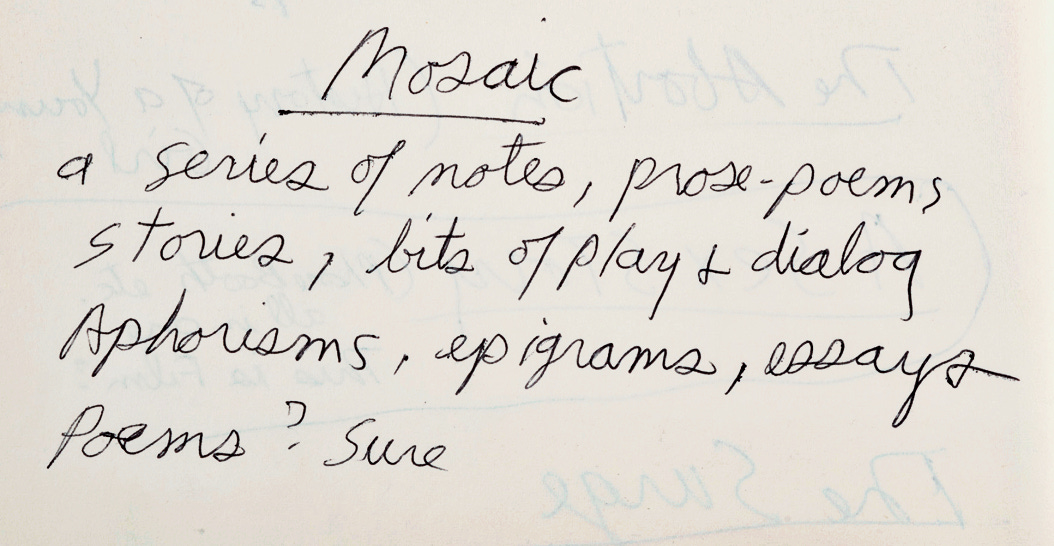 Mosaic
a series of notes, prose-poems
stories, bits of play & dialog
Aphorisms, epigrams, essays
Poems? Sure
The Surge